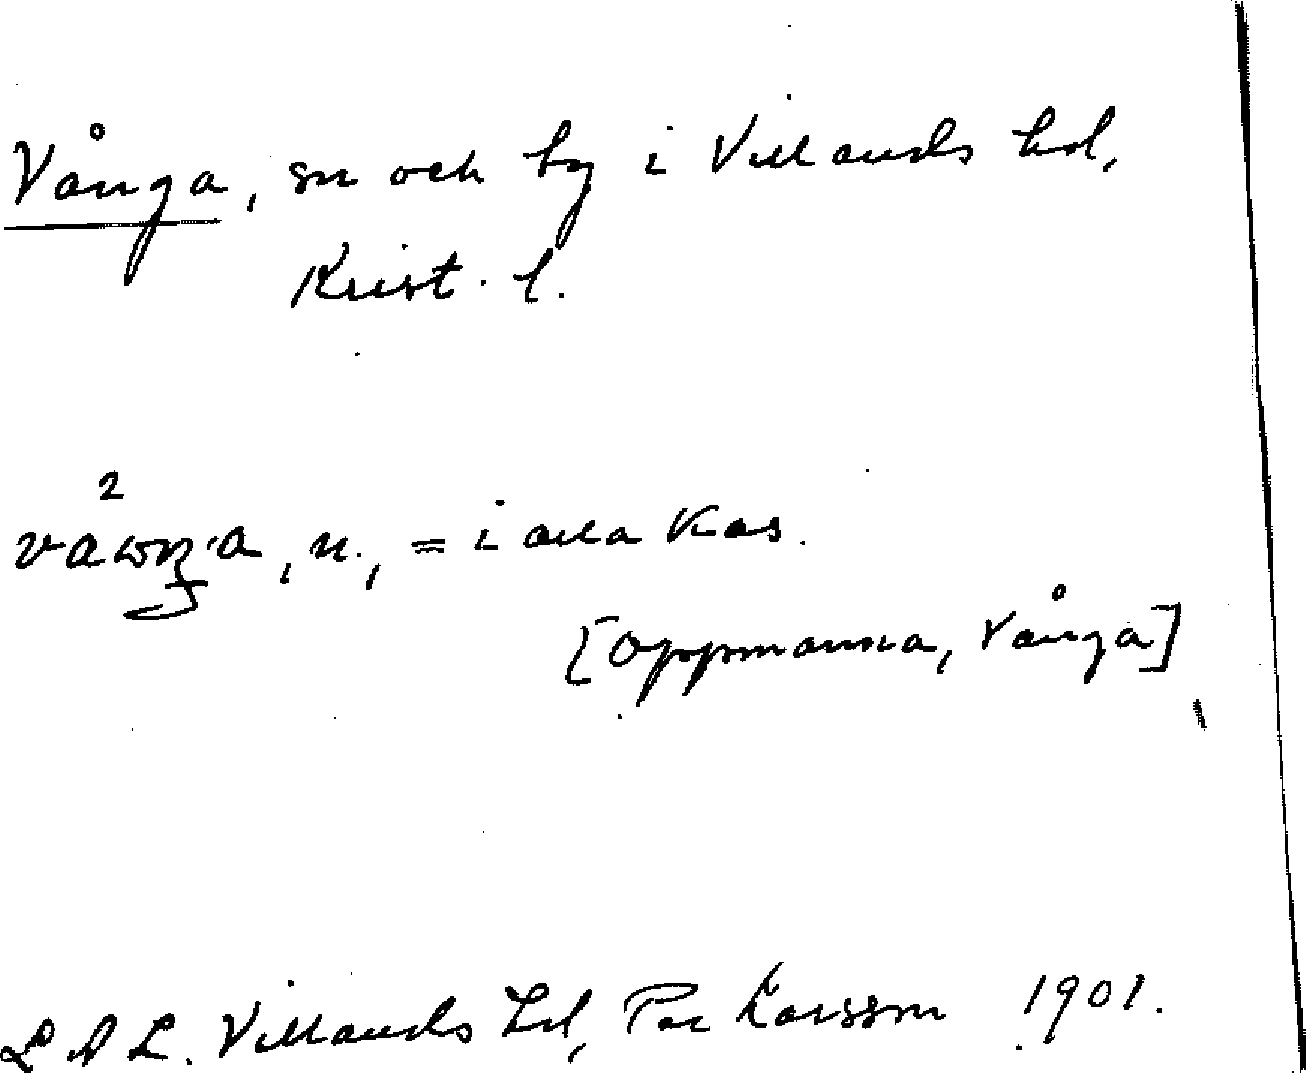 Vånga, sn och by i Villands hd,
Krist. l.
2
, n., = i alla kas.
[Oppmanna, Vånga]
L A L. Villands hd, Per Larsson 1901.